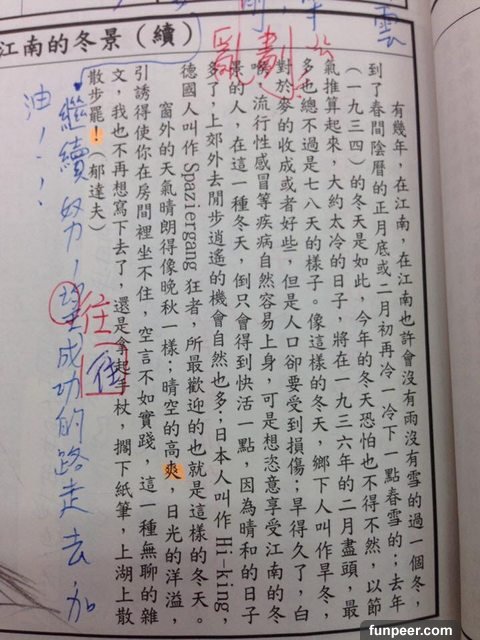 雲
劃
江南的冬景（續）
有幾年，在江南，在江南也許會沒有雨沒有雪的過一個冬，
到了春間陰曆的正月底或二月初再冷一冷下一點春雪的；去年
（一九三四）的冬天是如此，今年的冬天恐怕也不得不然，以節
氣推算起來，大約太冷的日子，將在一九三六年的二月盡頭，最
多也總不過是七八天的樣子。像這樣的冬天，鄉下人叫作旱冬，
對於麥的收成或者好些，但是人口卻要受到損傷；旱得久了，白
喉、流行性感冒等疾病自然容易上身，可是想恣意享受江南的冬
景的人，在這一種冬天，倒只會得到快活一點，因為晴和的日子
多了，上郊外去閒步逍遙的機會自然也多；日本人叫作 Hi-king,
德國人叫作 Spaziergang 狂者，所最歡迎的也就是這樣的冬天。
窗外的天氣晴朗得像晚秋一樣；晴空的高爽，日光的洋溢，
引誘得使你在房間裡坐不住，空言不如實踐，這一種無聊的雜
文，我也不再想寫下去了，還是拿起手杖，擱下紙筆，上湖上散
散步罷！（郁達夫）
往
往
繼續努力，成功的路走去加
油！
funpeer.com